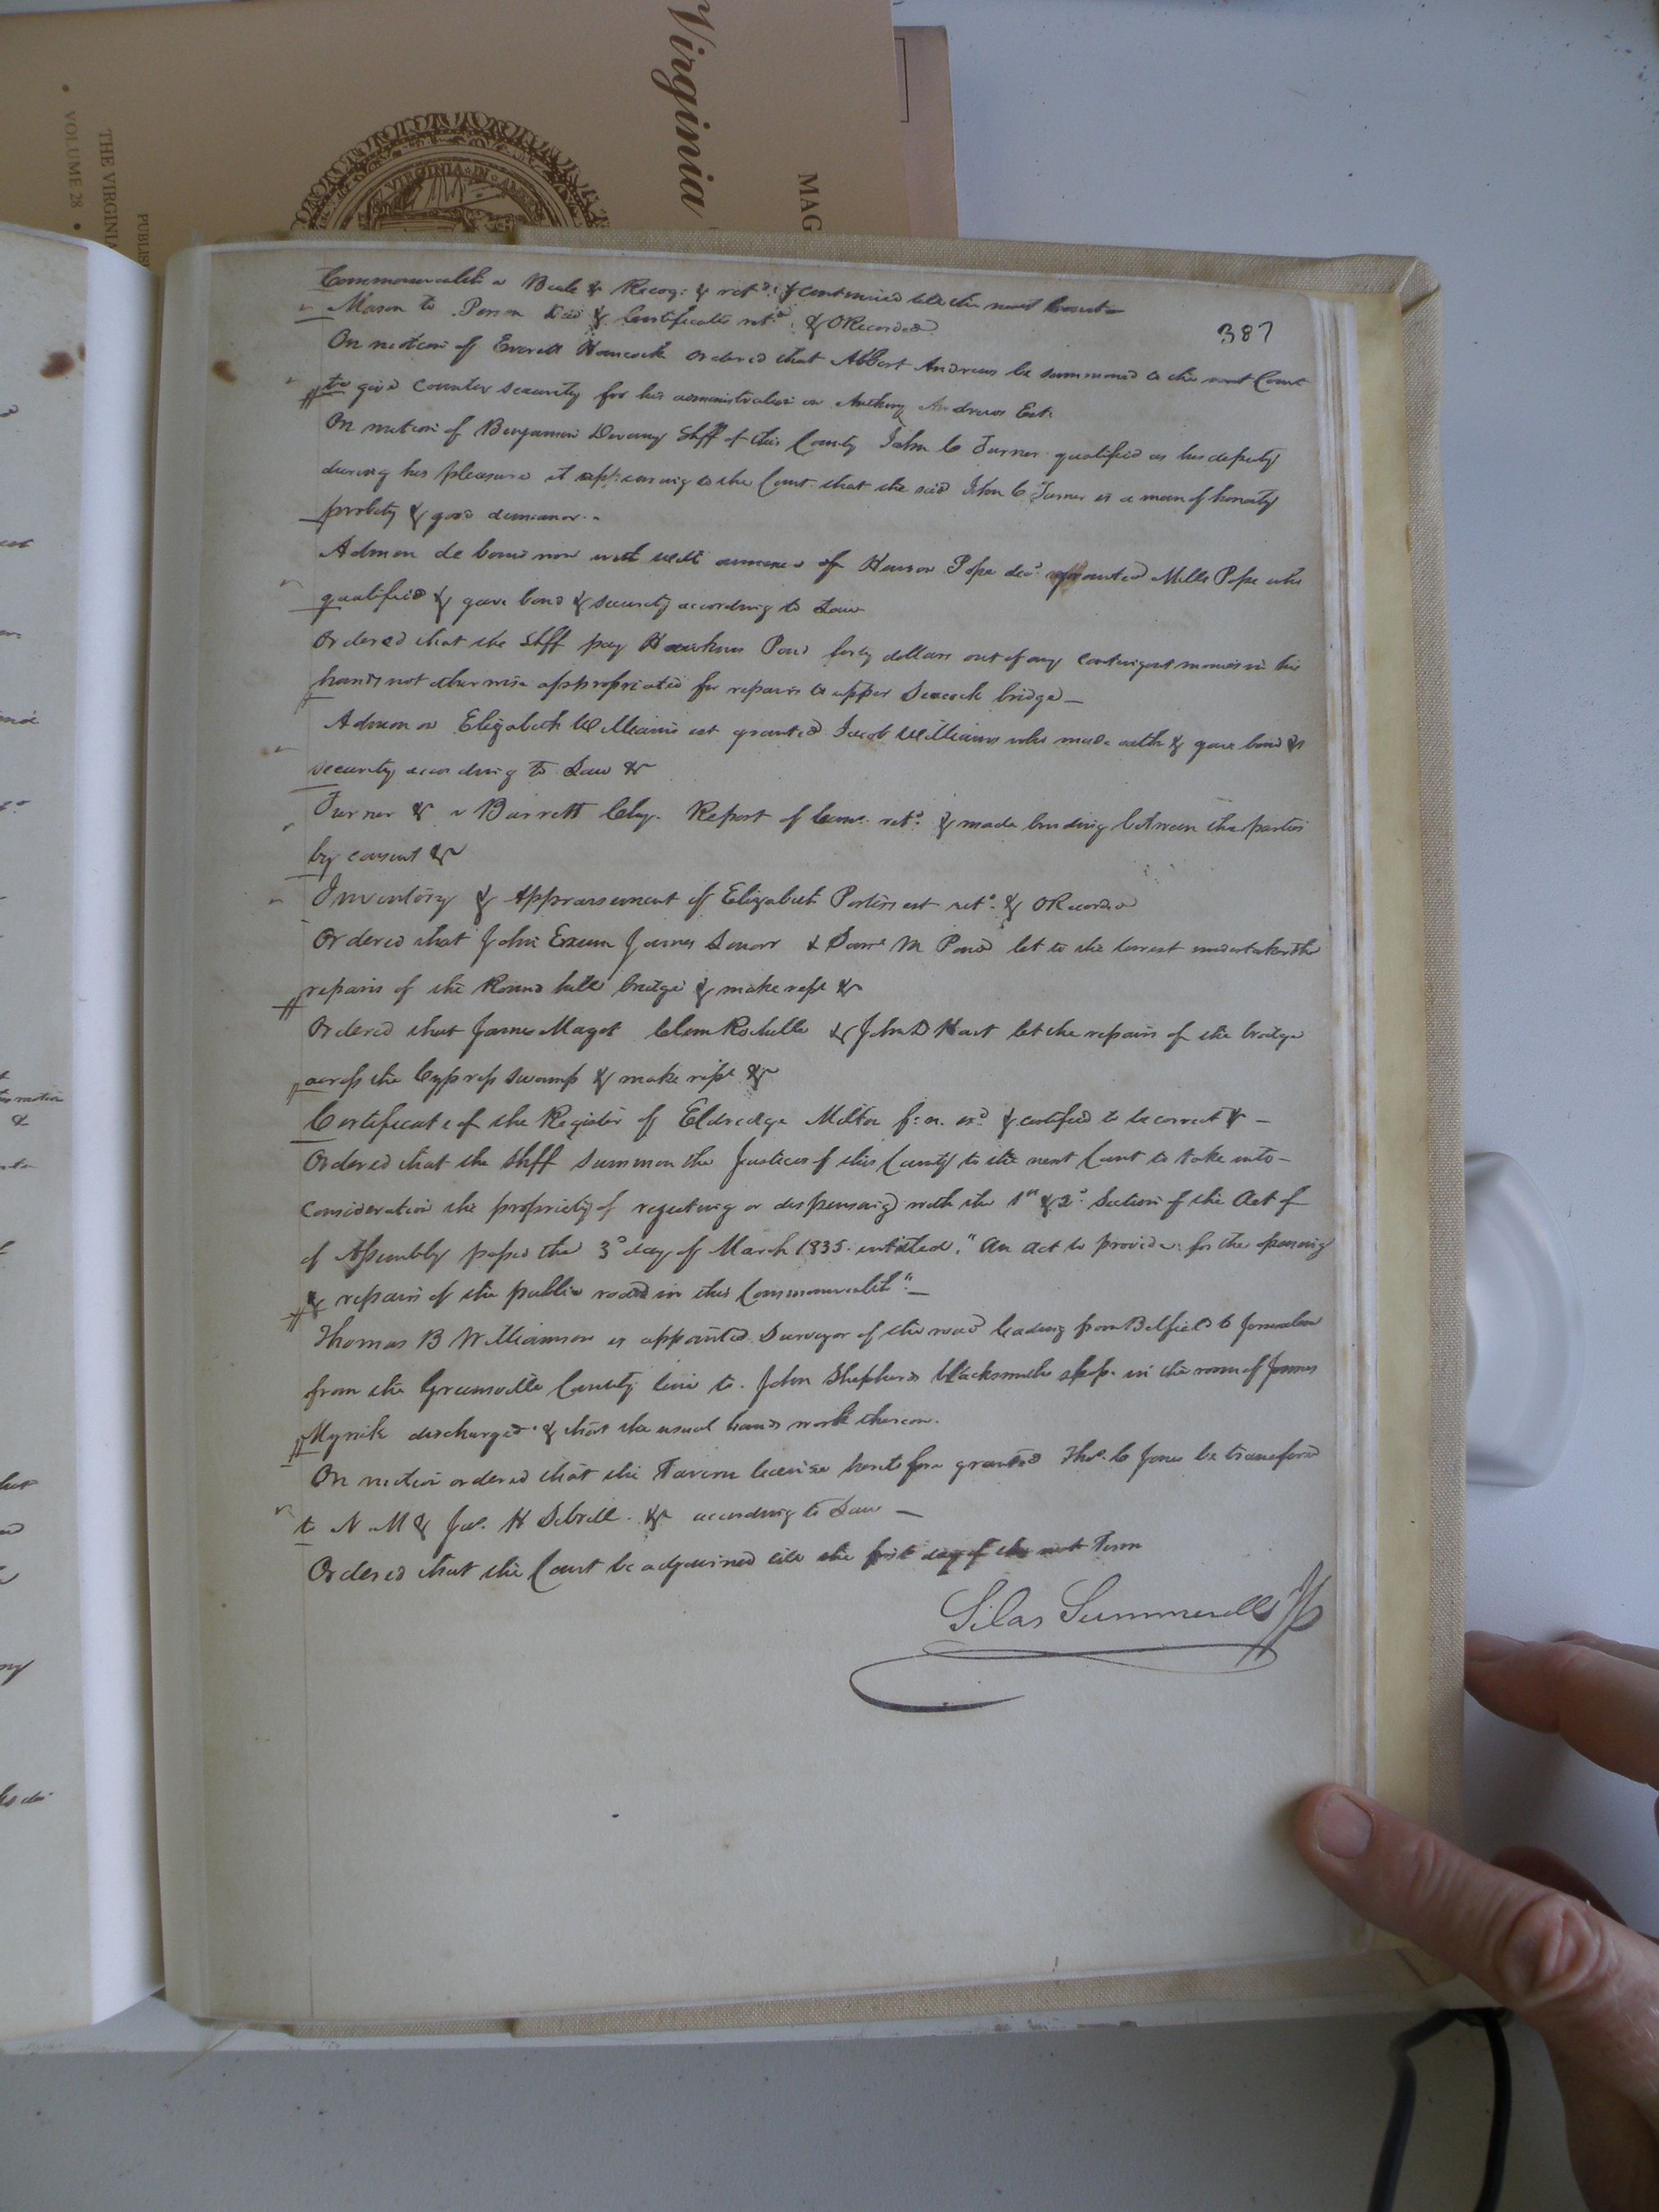 Virginia
MAG
THE VIRGINIA
VOLUME 28
PUBLIS
VIRGINIA IN
387
Commonwealth v Beale & Recog: & retd. & continued till the next Court
Mason to Person Deed & Certificates retd. & ORecorded
On motion of Everett Hancock ordered that Abbert Andrews be summoned to the next Court
to give counter security for his administration on Anthony Andrews Est:
On motion of Benjamin Devany Shff of this County John C Turner qualified as his deputy
during his pleasure it appearing to the Court that the said John C Turner is a man of honesty
probity & good demeanor.
Admon de bonis non with will annexed of Pope decd. granted Mills Pope who
qualified & gave bond & security according to Law
Ordered that the Shff pay Hawkins Pond forty dollars out of any contingent monies in his
hands not otherwise appropriated for repairs to upper Seacock bridge—
Admon on Elizabeth Williams est granted Jacob Williams who made oath & gave bond &
security according to Law &c
Turner & v Barrett Chy. Report of Comr. retd. & made binding between the parties
by consent &c
Inventory & Appraisement of Elizabeth Porters est retd. & ORecorded
Ordered that John Exum James & Saml M Pond let to the lowest undertaker the
repairs of the Round hill bridge & make rept &c
Ordered that James Maget Clem Rochelle & John D Hart let the repairs of the bridge
across the Cypress Swamp & make rept &c
Certificate of the Register of Eldredge Milton f: n. exd. & certified to be correct & —
Ordered that the Shff summon the Justices of this County to the next Court to take into—
consideration the propriety of rejecting or dispensing with the 1st & 2d. Section of the Act of
of Assembly passed the 3d day of March 1835. intitled. "An act to provide for the opening
& repairs of the public roads in this Commonwealth"—
Thomas B Williamson is appointed Surveyor of the road leading from Belfield to Jerusalem
from the Greensville County line to John Shepherds blacksmiths shop in the room of James
Myrick discharged & that the usual hands work thereon.
On motion ordered that the Tavern license heretofore granted Thos. C Jones be transfered
to N. M & Jas. H Sebrell. &c according to Law —
Ordered that the Court be adjourned till the first day of the next Term
Silas Summerell JP